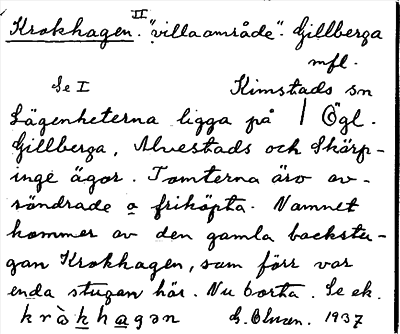 II
Krokhagen. "villaområde". Gillberga
mfl.
Se I Kimstads sn
Lägenheterna ligga på / Ögl.
Gillberga, Alvestads och Skärp-
inge ägor. Tomterna äro av-
söndrade o friköpta. Namnet
kommer av den gamla backstu-
gan Krokhagen, som förr var
enda stugan här. Nu borta. Se ek.
kràkhagən G. Olson. 1937